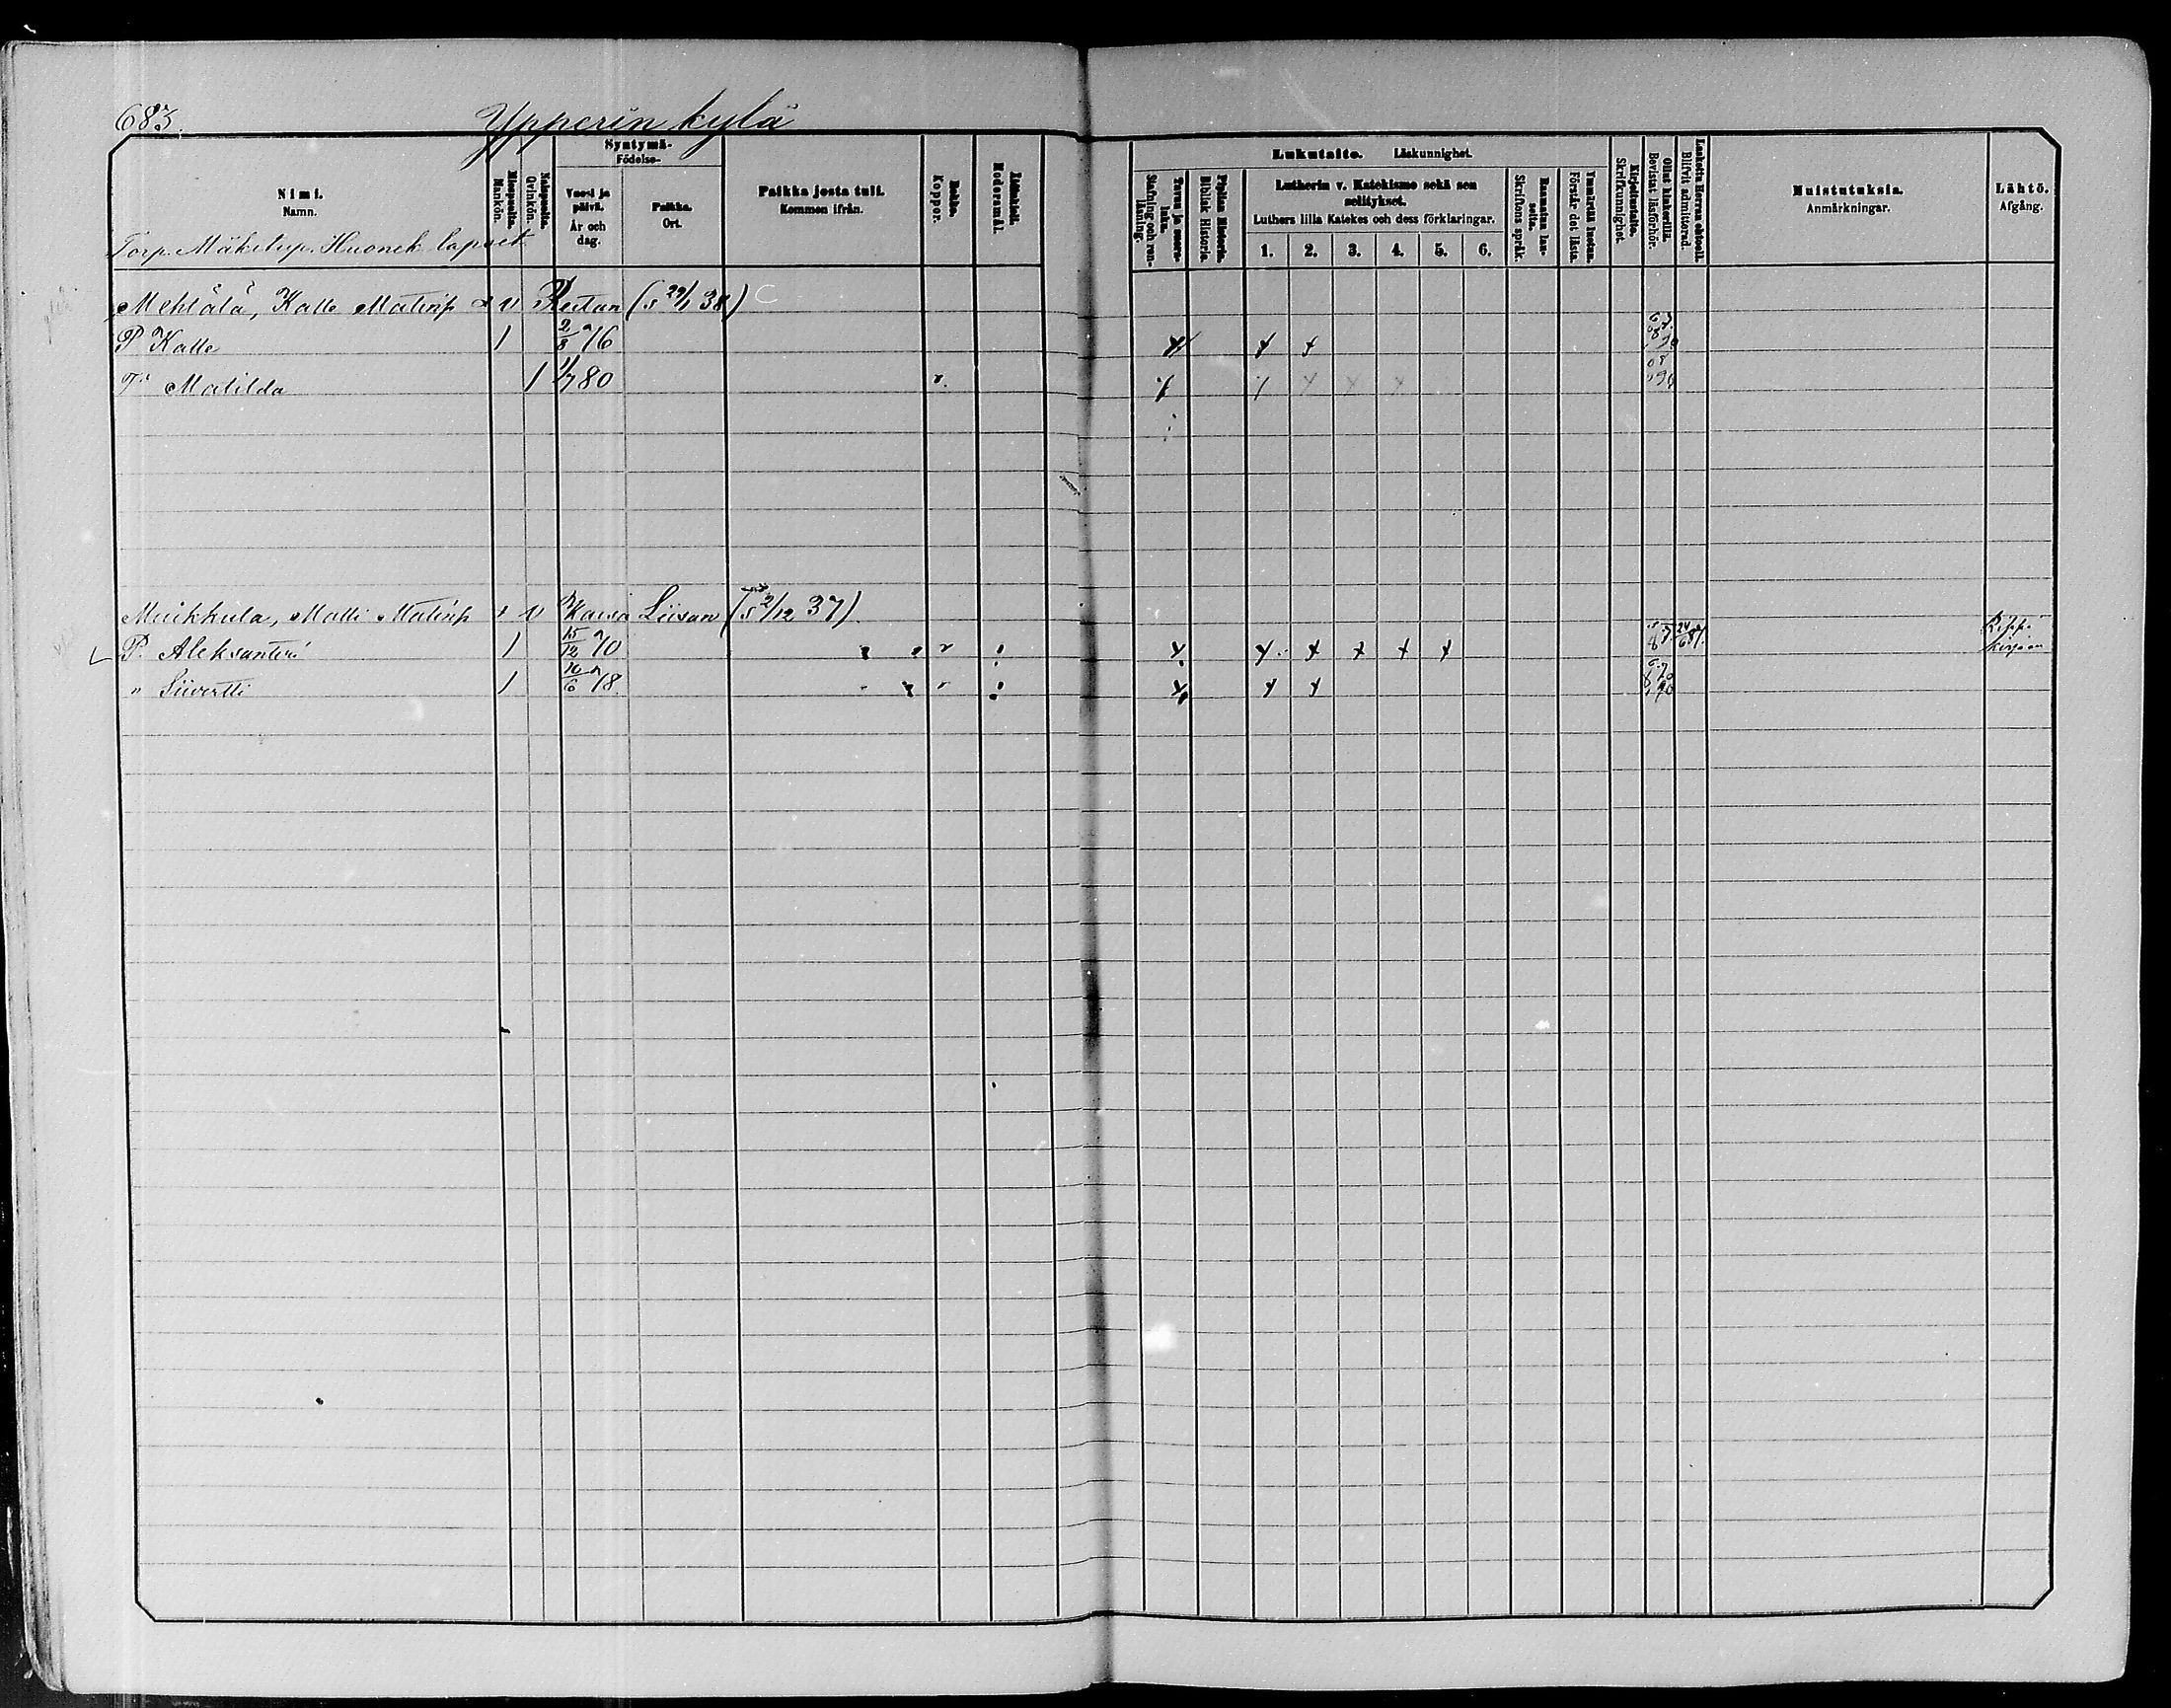 683. Ypperin kylä
Nimi. Namn.
Torp. Mäkitup. Huonek lapset
Miespuolta. Mankön.
Naispuolta. Qvinkön.
Syntymä- Födelse-
Vuosi ja päivä. År och dag.
Paikka. Ort.
Paikka josta tuli. Kommen ifrån.
Rokko. Koppor.
Äidinkieli. Modersmål.
Lukutaito. Läskunnighet.
Tavuu ja suoralukua. Stafning och renläsning.
Piplian Historia. Biblisk Historie.
Lutherin v. Katekismo sekä sen selitykset.
Luthers lilla Katekes och dess förklaringar.
1. 2. 3. 4. 5. 6.
Raamatun lauseita. Skriftens språk.
Ymmärtää luetun. Förstår det lästa.
Kirjoitustaito. Skrifkunnighet.
Ollut kinkerillä. Bevistat läsförhör.
Laskettu Herran ehtool. Blifvit admitterad.
Muistutuksia. Anmärkningar.
Lähtö. Afgång.
Mehtälä, Kalle Matinp (s 29/1 38)
P Kalle 1 2/8 76 x x x
T. Matilda 1 1/7 80 r. x x x x x
Muikkula, Matti Matinp Kaisa Liisan (s 2/12 37)
P. Aleksanteri 1 15/12 70 x x x x x x 24/6 87. Rippikirjaan
" Siivertti 1 78. x x x